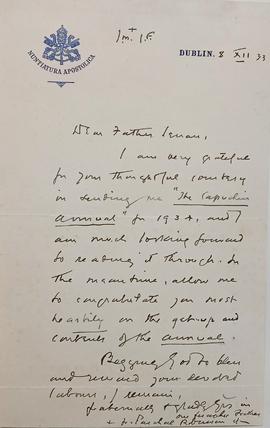 NUNTIATURA APOSTOLICA
DUBLIN. 8 XII 33
Dear Father Senan,
I am very grateful
for your thoughtful courtesy
in sending me "The Capuchin
Annual" for 1934, and I
am much looking forward
to reading it through. In
the meantime, allow me
to congratulate you most
heartily on the get-up and
contents of the Annual.
Begging God to bless
and reward your devoted
labours, I remain,
fraternally & gladly yrs in
our Seraphic Father
+ fr. Paschal Robinson